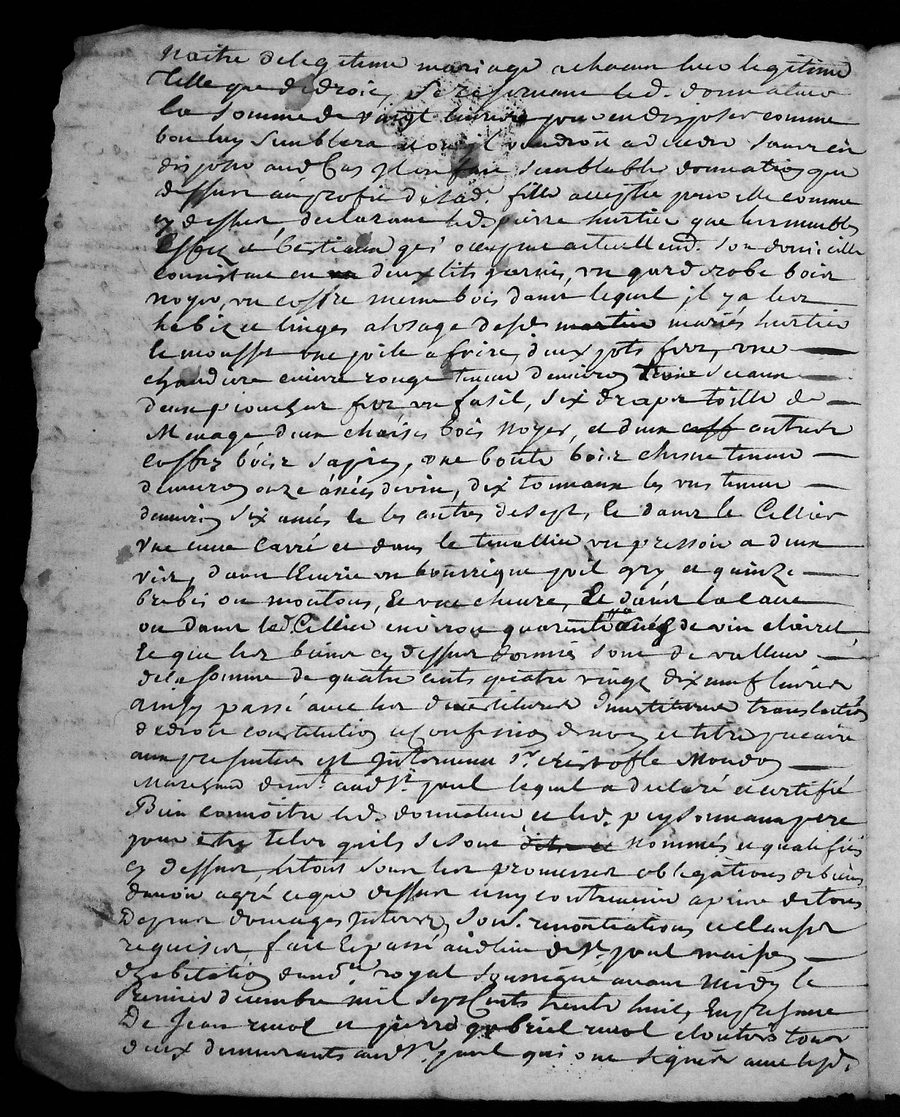 Naitre de legitime mariage a chacun leur legitime
telle que de droit, se reservant led. donnateur
la somme de vingt livres pour en disposer comme
bon luy semblera et ou il viendroit a deceder sans en
disposer aud. cas il en fait semblable donnation que
dessus au profit de lad. fille acceptée pour elle comme
cy dessus, declarant led. pierre hustier que les meubles
effets et bestiaux qui occupent actuellem. son domicille
consistent en deux lits garnis, un garderobe bois
noyer, un coffre meme bois dans lequel il y a les
habits et linges a l'usage desd. mariés hustier
et mousset une poile a frire, deux pots fer, une
chaudiere cuivre rouge tenant d'environ trois seaux
deux pioches fer un fusil, six draps toille de
Menage deux chaises bois noyer, et deux autres
coffres bois sapin, une boute bois chesne tenant
d'environ onze anées de vin, dix tonneaux les uns tenant
d'environ six anées et les autres de sept, et dans le Cellier
une cuve carré et dans le tinallier un pressoir a deux
vis, dans l'Ecurie un bourrique poil gry et quinze
brebis ou moutons, et une chevre, et dans la cave
ou dans led. Cellier environ quarante anées de vin clairet
et que les biens cy dessus donnés sont de valleur
de la somme de quatre cents quatre vingt dix neuf livres
ainsy passé avec les devestitures investitures translation
de droit constitution et confession de nom et titre precaire
aux presentes est intervenu Sr. cristofle
Marchand demt. aud. St. paul lequel a declaré et certifié
Bien connoitre led. donnateur et led. peysonnaux pere
pour etre telles qu'ils se sont nommés et qualifiés
cy dessus, le tout sous les promesses obligations de biens
d'avoir agré ce que dessus et ny contrevenir a peine de tous
Depens domages interets, sous. renontiations et clauses
requises fait et passé aud. lieu de St. paul maison
d'habitation du not. royal soussigné avant midy le
premier decembre mil sept cents trente huit, En presence
De Jean et pierre gabriel cloutiers tous
deux demeurants aud. St. paul qui ont signés avec lesd.